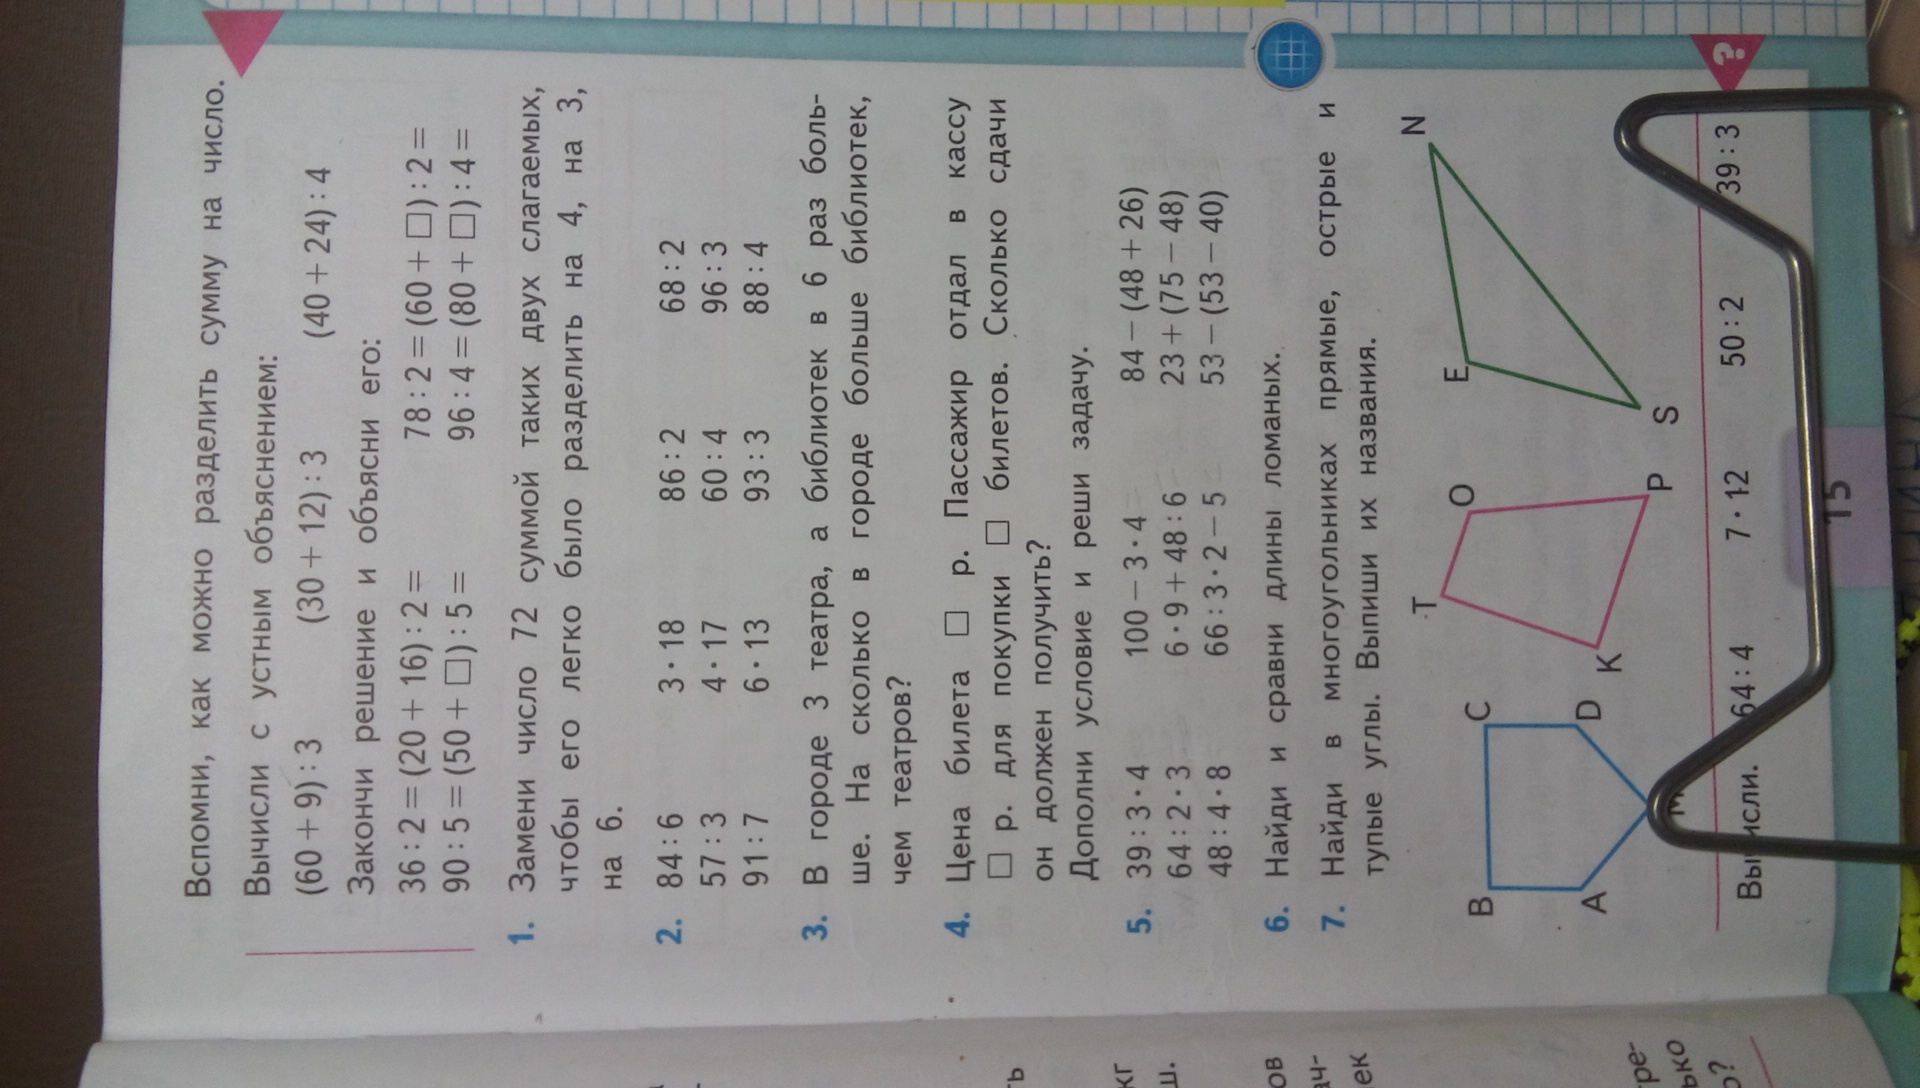 Вспомни, как можно разделить сумму на число.
Вычисли с устным объяснением:
(60 + 9) : 3 (30 + 12) : 3 (40 + 24) : 4
Закончи решение и объясни его:
36 : 2 = (20 + 16) : 2 = 78 : 2 = (60 + □) : 2 =
90 : 5 = (50 + □) : 5 = 96 : 4 = (80 + □) : 4 =
1. Замени число 72 суммой таких двух слагаемых,
чтобы его легко было разделить на 4, на 3,
на 6.
2. 84 : 6 3 · 18 86 : 2 68 : 2
57 : 3 4 · 17 60 : 4 96 : 3
91 : 7 6 · 13 93 : 3 88 : 4
3. В городе 3 театра, а библиотек в 6 раз боль-
ше. На сколько в городе больше библиотек,
чем театров?
4. Цена билета □ р. Пассажир отдал в кассу
□ р. для покупки □ билетов. Сколько сдачи
он должен получить?
Дополни условие и реши задачу.
5. 39 : 3 · 4 100 − 3 · 4 84 − (48 + 26)
64 : 2 · 3 6 · 9 + 48 : 6 23 + (75 − 48)
48 : 4 · 8 66 : 3 · 2 − 5 53 − (53 − 40)
6. Найди и сравни длины ломаных.
7. Найди в многоугольниках прямые, острые и
тупые углы. Выпиши их названия.
B C A D M
T O K P
E N S
?
64 : 4 7 · 12 50 : 2 39 : 3
15
кг
ш.
ов
ач-
ек
ре-
ько